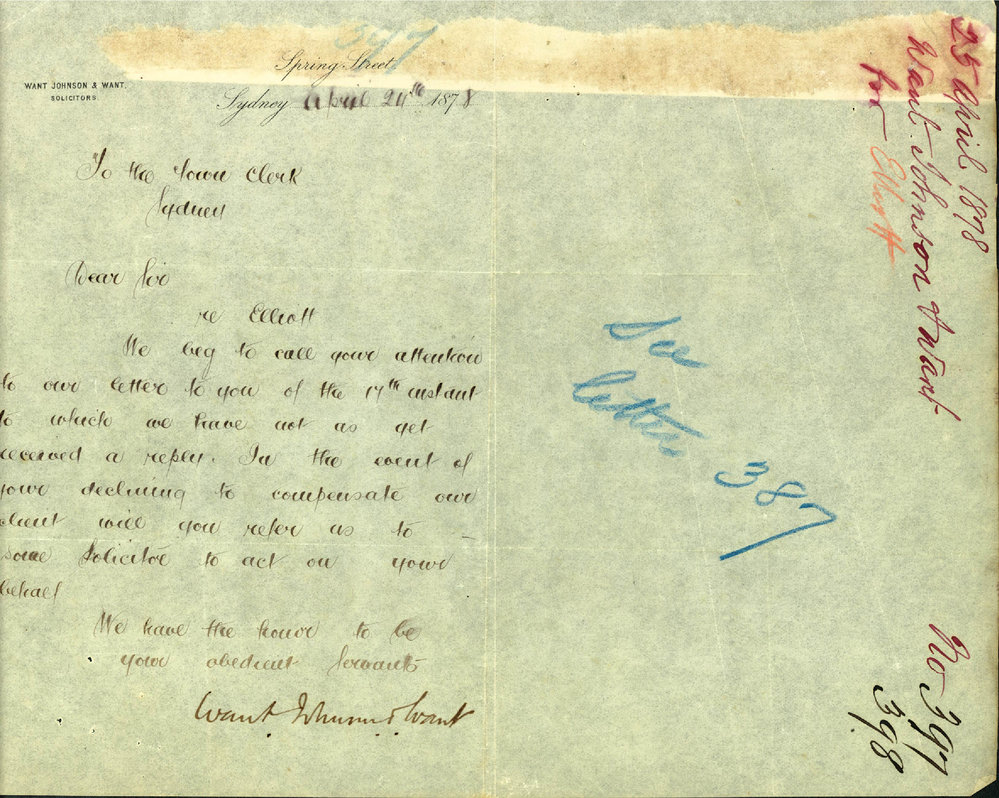 397
Spring Street.
WANT JOHNSON & WANT.
SOLICITORS.
Sydney April 24th 1878
To the Town Clerk
Sydney
Dear Sir
re Elliott
We beg to call your attention
to our letter to you of the 17th instant
to which we have not as yet
received a reply. In the event of
your declining to compensate our
client will you refer us to -
some Solicitor to act on your
behalf
We have the honor to be
your obedient Servants
Want Johnson & Want
See
letter 387
25 April 1878
Want Johnson & Want
for Elliott
No 397
398